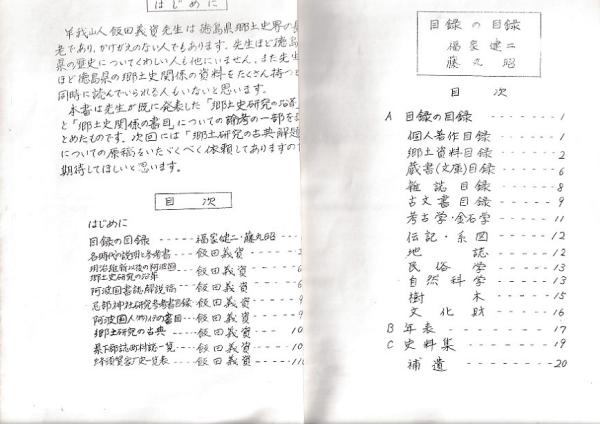 はじめに
飯田義資先生は徳島県郷土史界の長
老であり、かけがえのない人でもあります。先生ほど徳島
県の歴史についてくわしい人も他にいません。また先生
ほど徳島県の郷土史関係の資料をたくさん持つと
同時に読んでいられる人もいないと思います。
本書は先生が既に発表した「郷土史研究の沿革
と「郷土史関係の書目」についての 考の一部をま
とめたものです。次回には「郷土研究の古典・解題
についての原稿をいただくべく依頼してありますので
期待してほしいと思います。
目 次
はじめに
目録の目録 ----- 福家健二・藤丸昭
各時代の説明と参考書 --- 飯田義資
明治維新以後の阿波国
郷土史研究の沿革 ---- 飯田義資 6
阿波国書誌解説稿 ---- 飯田義資 6
忌部神社研究参考書目録 飯田義資 9
飯田義資 9
郷土研究の古典 ---- 飯田義資 --- 10
県下郡誌町村誌一覧 -- 飯田義資 --- 10
飯田義資 --- 11
目録の目録
福家健二
藤丸昭
目 次
A 目録の目録 ------- 1
個人著作目録 ------ 1
郷土資料目録 ------ 2
蔵書(文庫)目録 ----- 6
雑誌目録 ------ 8
古文書目録 ------ 9
考古学・金石学 ----- 11
伝記・系図 ------ 12
地 誌 ------ 12
民俗学 ------ 13
自然科学 ------ 13
樹 木 ------ 15
文化財 ------ 16
B 年表 --------- 17
C 史料集 -------- 19
補遺 -------- 20